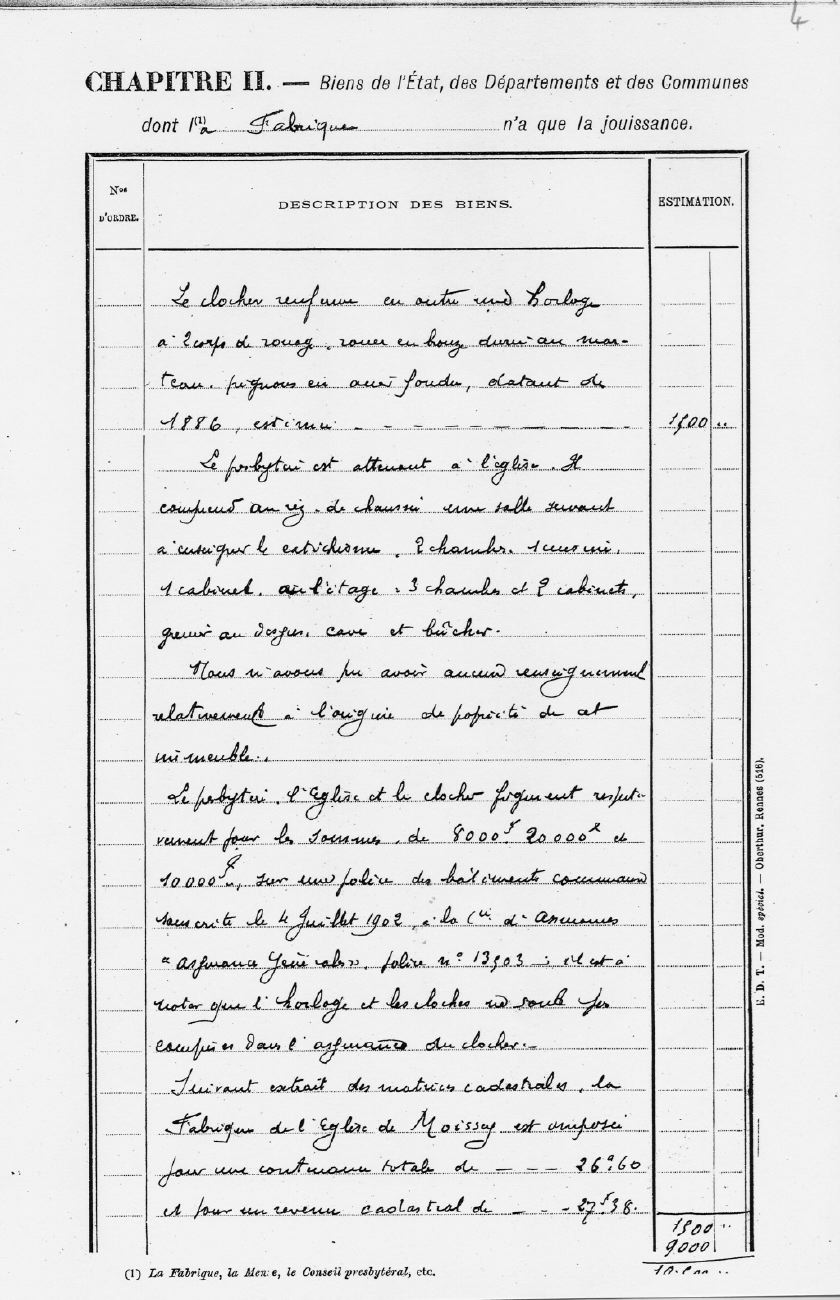 4
CHAPITRE II. — Biens de l'État, des Départements et des Communes
dont l(1)a Fabrique n'a que la jouissance.
Nos D'ORDRE.
DESCRIPTION DES BIENS.
ESTIMATION.
Le clocher renferme en outre une horloge
à 2 corps de rouage, roues en bronze durci au mar-
teau, pignons en acier fondu, datant de
1886, estimée 1500 "
Le presbytère est attenant à l'église. Il
comprend au rez-de-chaussée une salle servant
à enseigner le catéchisme, 2 chambres, 1 cuisine,
1 cabinet, à l'étage : 3 chambres et 2 cabinets,
grenier au dessus, cave et bûcher.
Nous n'avons pu avoir aucun renseignement
relativement à l'origine de propriété de cet
immeuble.
Le presbytère, l'Eglise et le clocher figurent respecti-
vement pour les sommes de 8000f, 20000f et
10000f, sur une police des bâtiments communaux
souscrite le 4 Juillet 1902, à la Cie d'assurances
"assurances Générales", police n° 13903 : il est à
noter que l'horloge et les cloches ne sont pas
comprises dans l'assurance du clocher.
Suivant extrait des matrices cadastrales, la
Fabrique de l'Eglise de Moissey est imposée
pour une contenance totale de — — — 26a.60
et pour un revenu cadastral de — — - 27f.38.
1500 "
9000
(1) La Fabrique, la Mense, le Conseil presbytéral, etc.
E. D. T. — Mod. spécial. — Oberthur, Rennes (516).